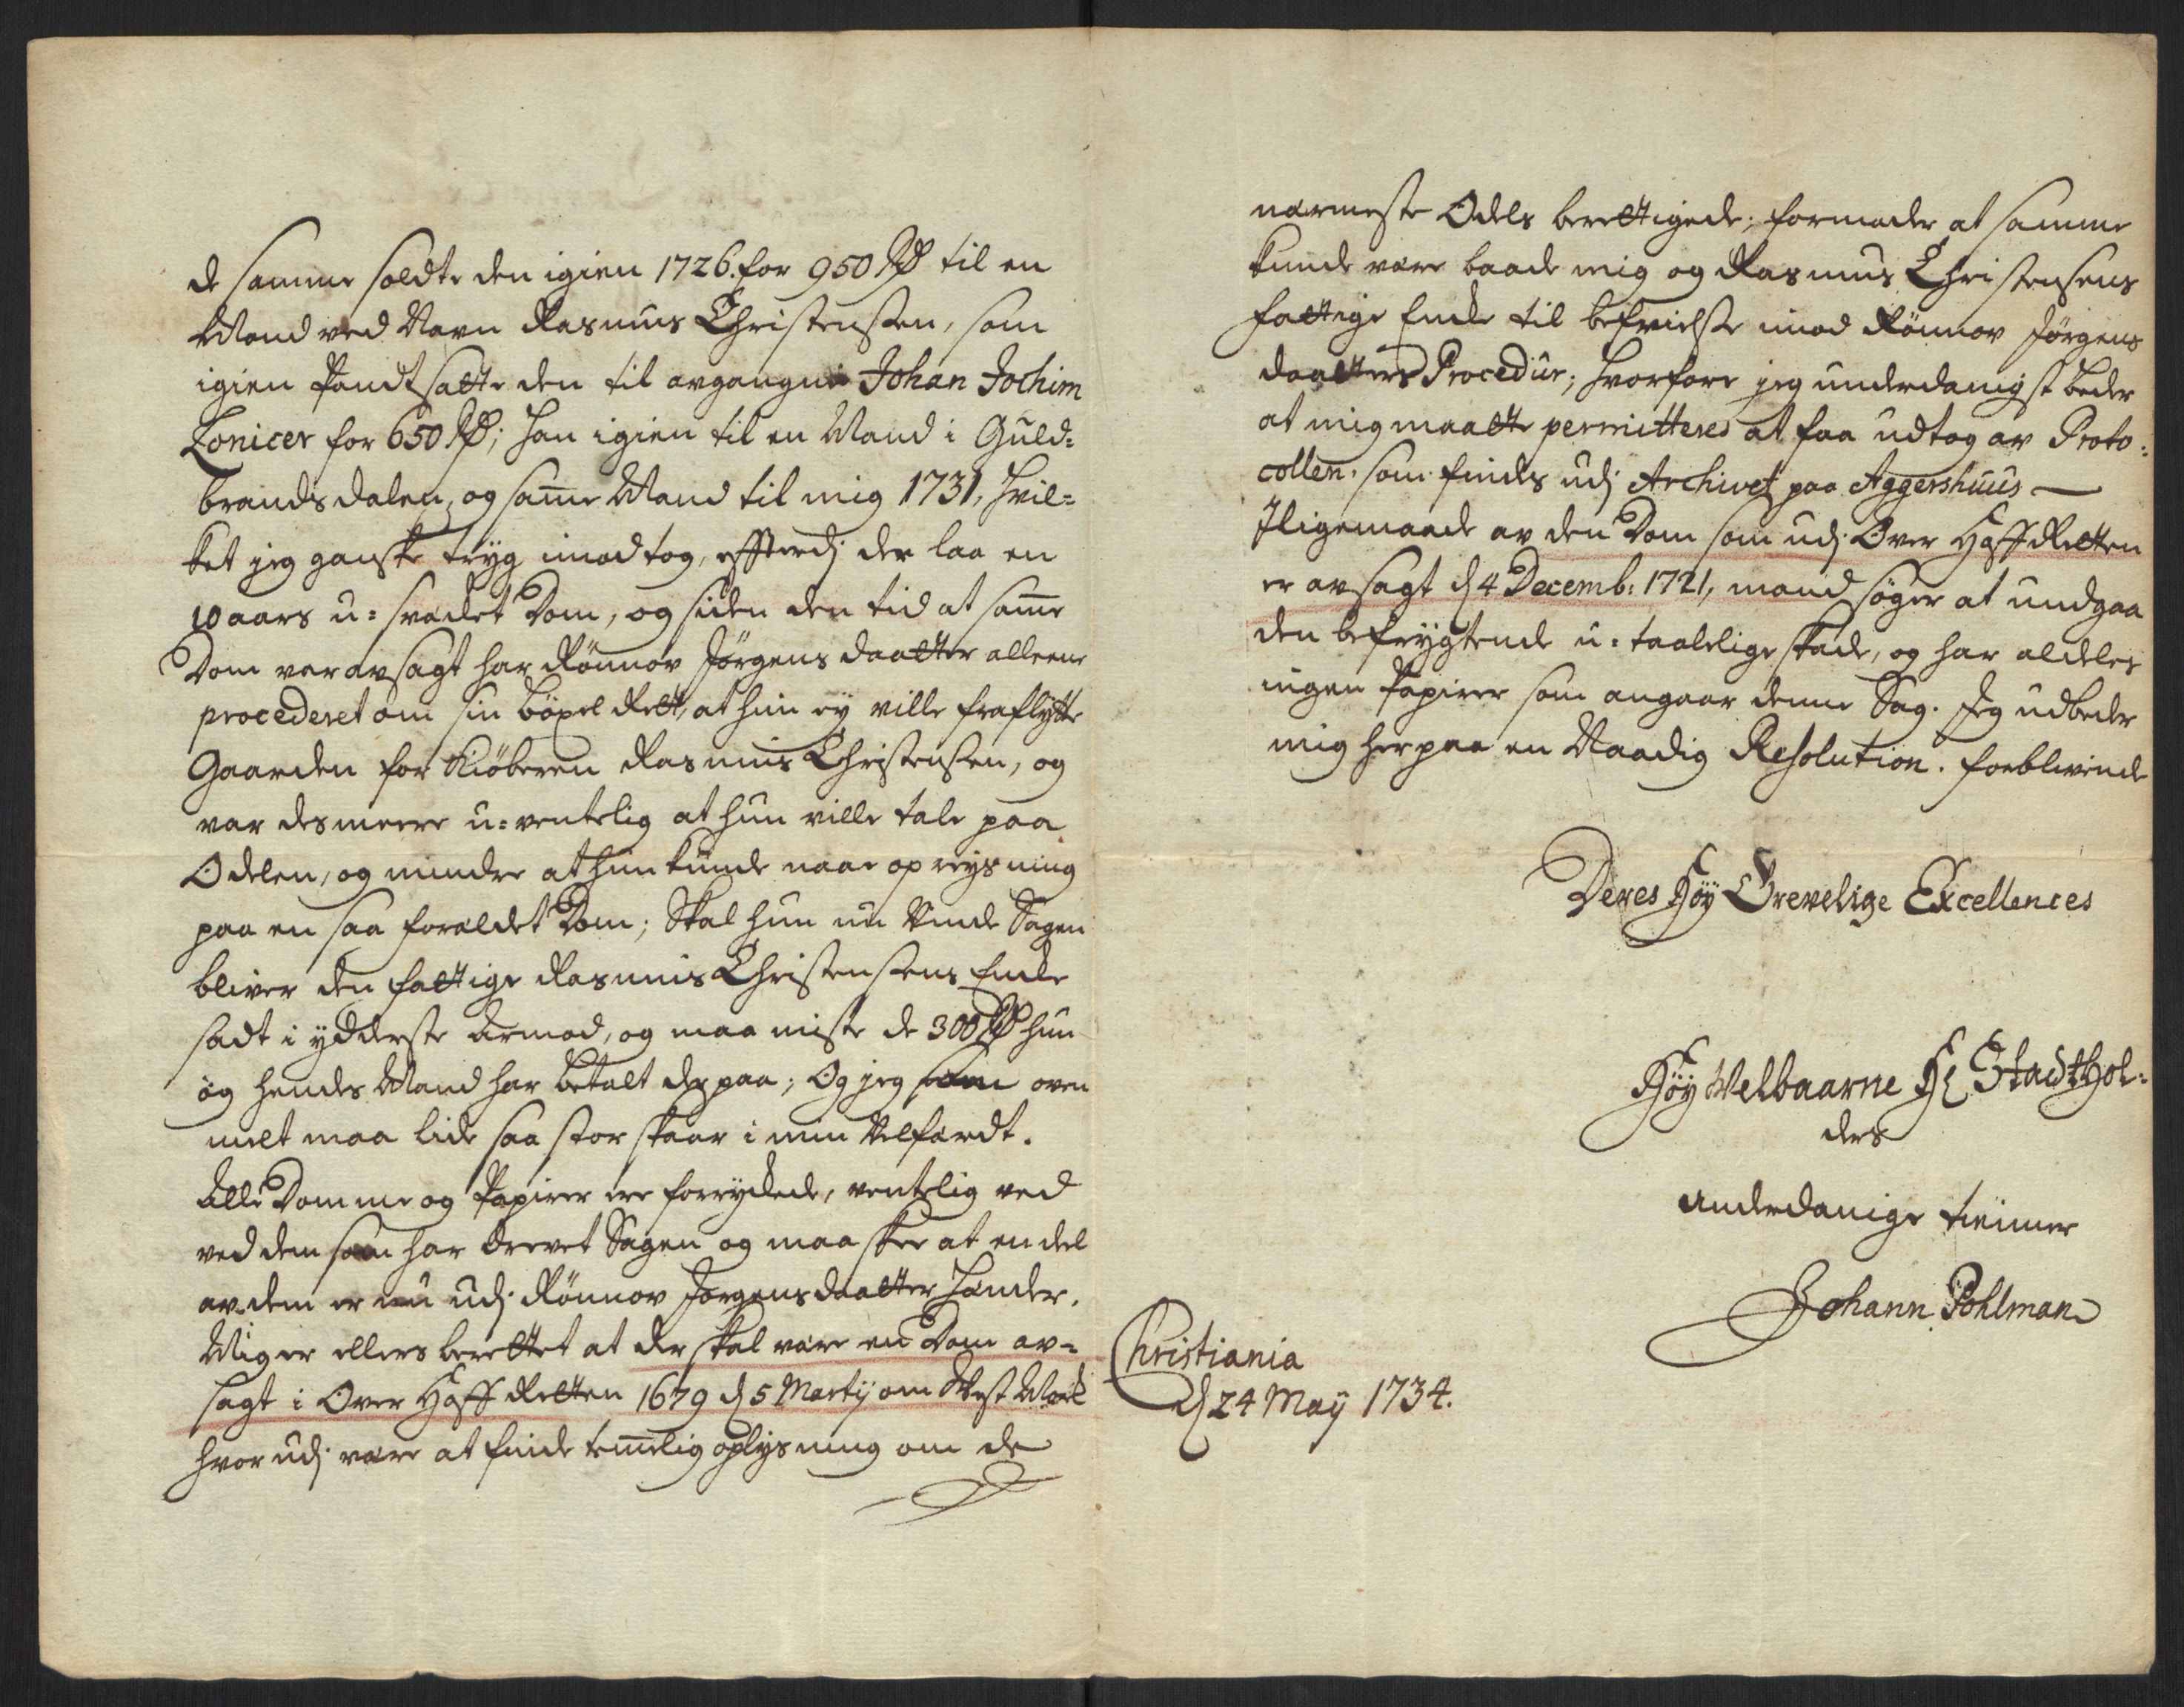 de samme soldte den igien 1726. for 950 Rd til en
Mand ved Navn Rasmus Christensen, som
igien Pandtsatte den til avgangne Johan Jochim
Lonicer for 650 Rd; han igien til en Mand i Guld=
brands dalen, og same Mand til mig 1731, hvil=
ket jeg ganske tryg imodtog, effterdj der laa en
10 aars u=svæcket Dom, og siden den tid at same
Dom var avsagt har Rönnov Jörgens daatter alleene
procederet om sin böxel Rett, at hun ey ville fraflytte
Gaarden for Kiöberen Rasmus Christensen, og
var desmeere u=ventelig at hun ville tale paa
Odelen, og mindre at hun kunde naae opreysning
paa en saa foraldet Dom; Skal hun nu Vinde Sagen
bliver den fattige Rasmus Christensens Encke
sadt i ydderste Armod, og maa miste de 300 Rd hun
og hendes Mand har betalt der paa; Og jeg som oven
melt maa lide saa stor skaar i min Velfærdt.
Alle Domme og Papirer ere forryckede, ventelig ved
ved dem som har drevet Sagen og maa skee at en deel
av dem er nu udj Rönnov Jörgensdaatter Hænder.
Mig er ellers berettet at der skal være en Dom av=
sagt i Over Hoff Retten 1679 d 5 Martij om Vest Moe
hvor udj være at finde temelig oplysning om de
nærmeste Odels berettigede; formoder at samme
kunde være baade mig og Rasmus Christensens
fattige Encke til befrielse imod Rönnov Jörgens
daatters Procedur; hvorfore jeg underdanigst beder
at mig maatte permitteres at faa udtog av Proto=
collen. som findes udj Archivet paa Aggershuus —
Iligemaade av den Dom som udj Over Hoff Retten
er avsagt d 4 Decemb: 1721, mand söger at undgaa
den befrygtende u=taalelige skade, og har aldeles
ingen Papirer som angaar denne Sag. Jeg udbeder
mig her paa en Naadig Resolution. forblivende
Deres Höy Grevelige Excellences
Höy Velbaarne Hr Stadthol=
ders
Underdanige tienner
Johann Pohlman
Christiania
d 24 May 1734.